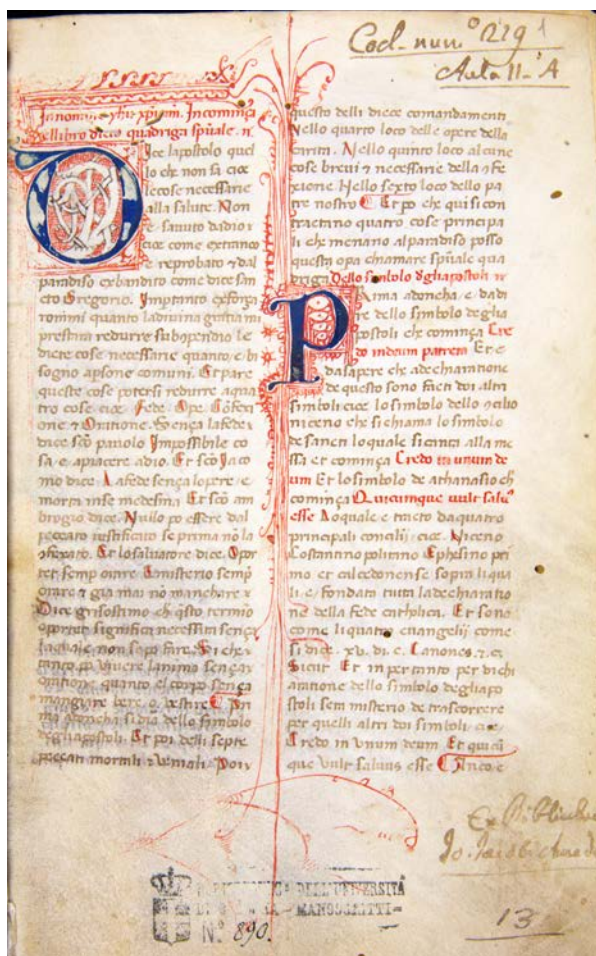 Cod. num.º 219
Aula II. A
In nomine yhu xpi am. Incominça
el libro dicto quadriga spuale. r.
Dice lapostolo quel
lo che non sa cioe
le cose necessarie
alla salute. Non
e sauuto dadio
cioe come extraneo
e reprobato & dal
paradiso exbandito come dice san
cto Gregorio. Impertanto exforça
romi quanto ladiuina gratia mi
prestara redurre sub
dicte cose necessarie quanto e bi
sogno apsone comuni. Et pare
queste cose potersi redurre aqua
tro cose cioe fede. Ope. Cōfessi
one & Oratione. Sença lafede
dice sco paulo Impossibile co
sa e apiacere adio. Et sco Jaco
mo dice. La fede sença lopere e
morta inse medesma. Et sco am
brogio dice. Nullo po essere dal
peccato iustificato se prima nō la
cōfessato. Et lo saluatore dice. Opor
tet semp orare
orare & gia mai nō manchare &
Dice grisostimo ch q̄sto termio
oportet significa necessita sença
laquale non sepo fare. Si che
tanto po viuere lanima sençar
oratione quanto el corpo sença
mangiare bere o vestire Pri
ma adoncha si dia dello simbolo
degliapostoli. Et poi delli septe
peccati mortali & veniali. Poi
questo delli diece comandamenti
Nello quarto loco delle opere della
carita. Nello quinto loco alcune
cose breui & necessarie della cōfe
xione. Nello sexto loco dello pa
tre nostro Et po che qui si con
tractano quatro cose principa
li che menano alparadiso posso
questa opa chiamare spūale qua
driga. Dello simbolo dgliapostoli r
Prima adoncha e dadi
re dello simbolo deglia
postoli che comença Cre
do indeum patrem Et e
dasapere che adechiaratione
de questo sono facti doi altri
simboli cioe lo simbolo dello cōcilio
niceno che si chiama lo simbolo
de sancti loquale si canta alla me
ssa et comença Credo in unum de
um Et lo simbolo de athanasio ch
comença Quicumque vult saluꝰ
esse Loquale e tracto daquatro
principali concilii cioe. Niceno
Costantino politano Ephesino pri
mo et calcedonense sopra liqua
li e fondata tutta ladechiaratio
ne della fede catholica. Et sono
come liquatro euangelii come
si dice. xv. di. c. Canones. & c.
Sicut Et in per tanto per dichi
aratione dello simbolo degliapo
stoli sem misterio de trascorrere
per quelli altri doi simboli cie
Credo in unum deum Et quicū
que vult saluus esse
Ex Biblioth
Jo. Jacobi
BIBLIOTECA DELL'UNIVERSITÀ
DI GENOVA - MANOSCRITTI =
N.º 890.
13